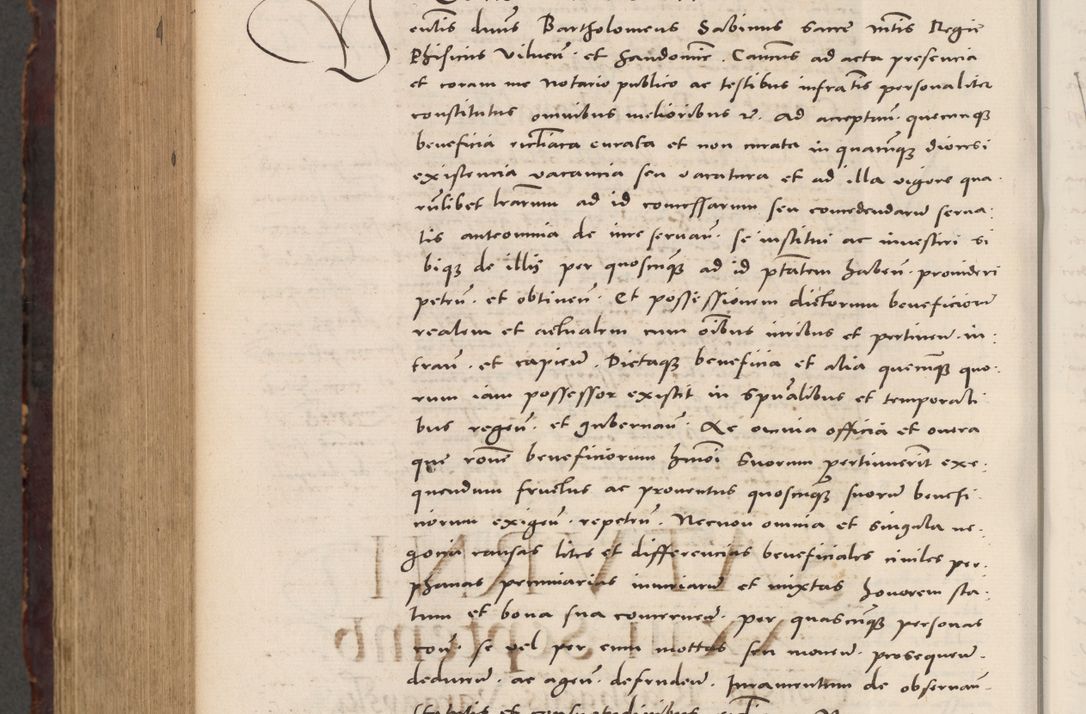 entis dnus Bartholomeus Sabinus Sacre mtis Regie
Phisicus Vilnen. et Sandomir. Canonicus ad acta presencia
et coram me Notario publico ac testibus infratis personaliter
constitutus omnibus melioribus etc. Ad acceptan. quecunque
beneficia eccliastica curata et non curata in quacunque diocesi
existencia vacancia seu vacatura et ad illa vigore qua-
rulibet lrarum ad id concessarum seu concedendarum serua-
tis anteomnia de iure seruan. se institui ac inuestiri si
bique de illis per quoscunque ad id ptatem haben. prouideri
peten. et obtinen. Et possessionem dictorum beneficiorum
realem et actualem cum oibus iuribus et pertinen. in-
tran. et capien. Dictaque beneficia et alia quecunque quo-
rum iam possessor existit in spualibus et temporali
bus regen. et gubernan. Ac omnia officia et onera
que rone beneficiorum hmoi Suorum pertinuerit exe-
quendum fructus ac prouentus quoscunque suorum benefi-
ciorum exigen. repeten. Necnon omnia et singula ne-
gocia causas lites et differencias beneficiales ciuiles per-
phanas pecuniarias iniuriarum et mixtas honorem sta-
tum et bona sua concernen. per quascunque personas
con. se vel per eum mottas seu mouen. prosequen.
deducen. ac agen. defenden. Iuramentum de obseruan-